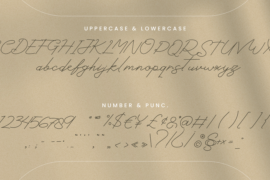 UPPERCASE & LOWERCASE
CDEFGHIJKLMNOPQRSTUVWX
abcdefghijklmnopqrstuvwxyz
NUMBER & PUNC.
123456789